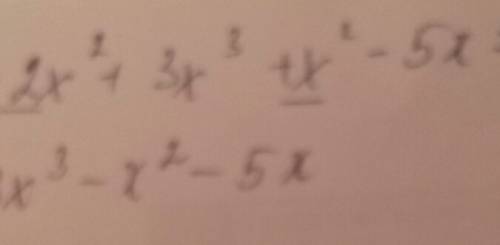 2x² + 3x³ + x² - 5x =
3x³ - x² - 5x